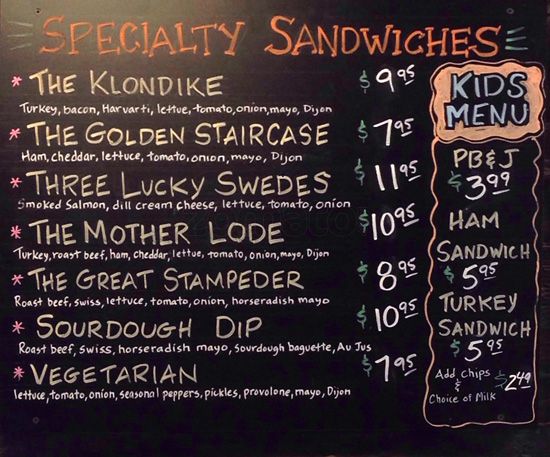 SPECIALTY SANDWICHES
* THE KLONDIKE $9.95
Turkey, bacon, Harvarti, lettue, tomato, onion, mayo, Dijon
* THE GOLDEN STAIRCASE $7.95
Ham, cheddar, lettuce, tomato, onion, mayo, Dijon
* THREE LUCKY SWEDES $11.95
Smoked Salmon, dill cream cheese, lettuce, tomato, onion
* THE MOTHER LODE $10.95
Turkey, roast beef, ham, cheddar, lettue, tomato, onion, mayo, Dijon
* THE GREAT STAMPEDER $8.95
Roast beef, swiss, lettuce, tomato, onion, horseradish mayo
* SOURDOUGH DIP $10.95
Roast beef, swiss, horseradish mayo, sourdough baguette, Au Jus
* VEGETARIAN $7.95
lettuce, tomato, onion, seasonal peppers, pickles, provolone, mayo, Dijon
KIDS
MENU
PB&J
$3.99
HAM
SANDWICH
$5.95
TURKEY
SANDWICH
$5.95
Add chips
& $2.49
Choice of Milk